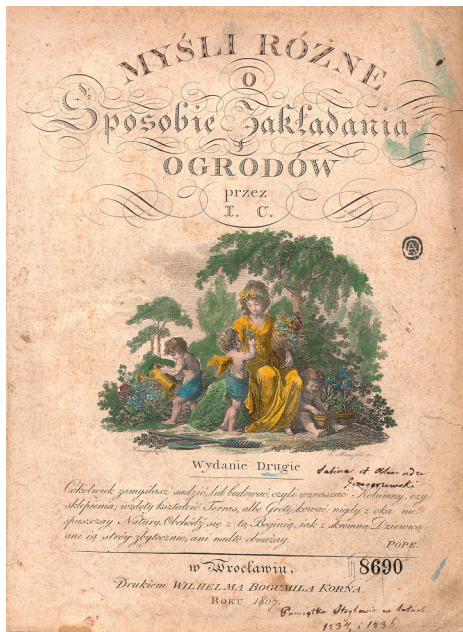 MYŚLI RÓŻNE
O
Sposobie Zakładania
OGRODÓW
przez
I. C.
Wydanie Drugie
Sabina et
Cokolwiek zamyślasz sadzić, lub budować, czyli wznaszać Kolumny, czy
sklepienia; wzdęty kształcić Terras, albo Grotę kować; nigdy z oka nie
opuszczay Natury. Obchodź się z tą Boginią, jak z skromną Dziewicą
ani ią stróy zbytecznie, ani nadto obnażay.
POPE.
w Wrocławiu,
8690
Drukiem WILHELMA BOGUMILA KORNA.
ROKU 1807.
Pamiątka w latach
1834 i 1836